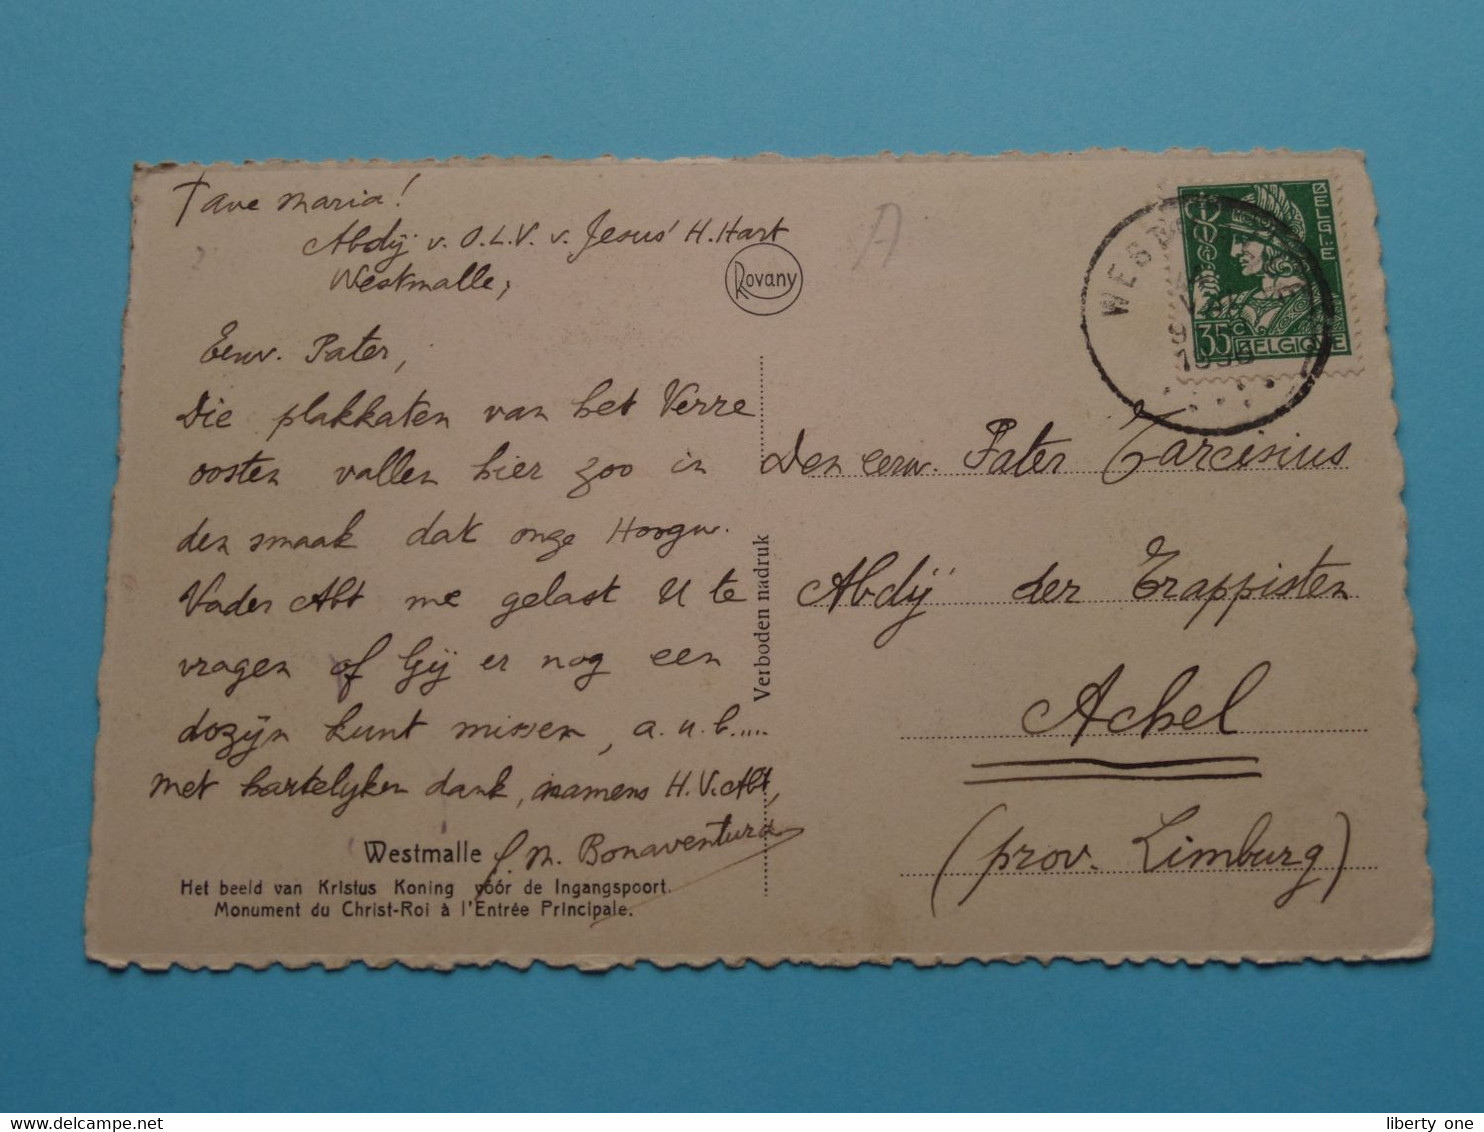 † ave Maria!
Abdij v. O.L.V. v. Jesus' H. Hart
Westmalle,
Rovany
Eerw. Pater,
Die plakkaten van het Verre
oosten vallen hier zoo in
den smaak dat onze Hoogw.
Vader Abt me gelast U te
vragen of Gij er nog een
dozijn kunt missen, a.u.b.....
Met hartelijken dank, namens H.V. Abt,
f. M. Bonaventura
Westmalle
Het beeld van Kristus Koning vóór de Ingangspoort.
Monument du Christ-Roi à l'Entrée Principale.
Verboden nadruk
BELGIË
35c
BELGIQUE
Den eerw. Pater Tarcisius
Abdij der Trappisten
Achel
(prov. Limburg)
liberty one